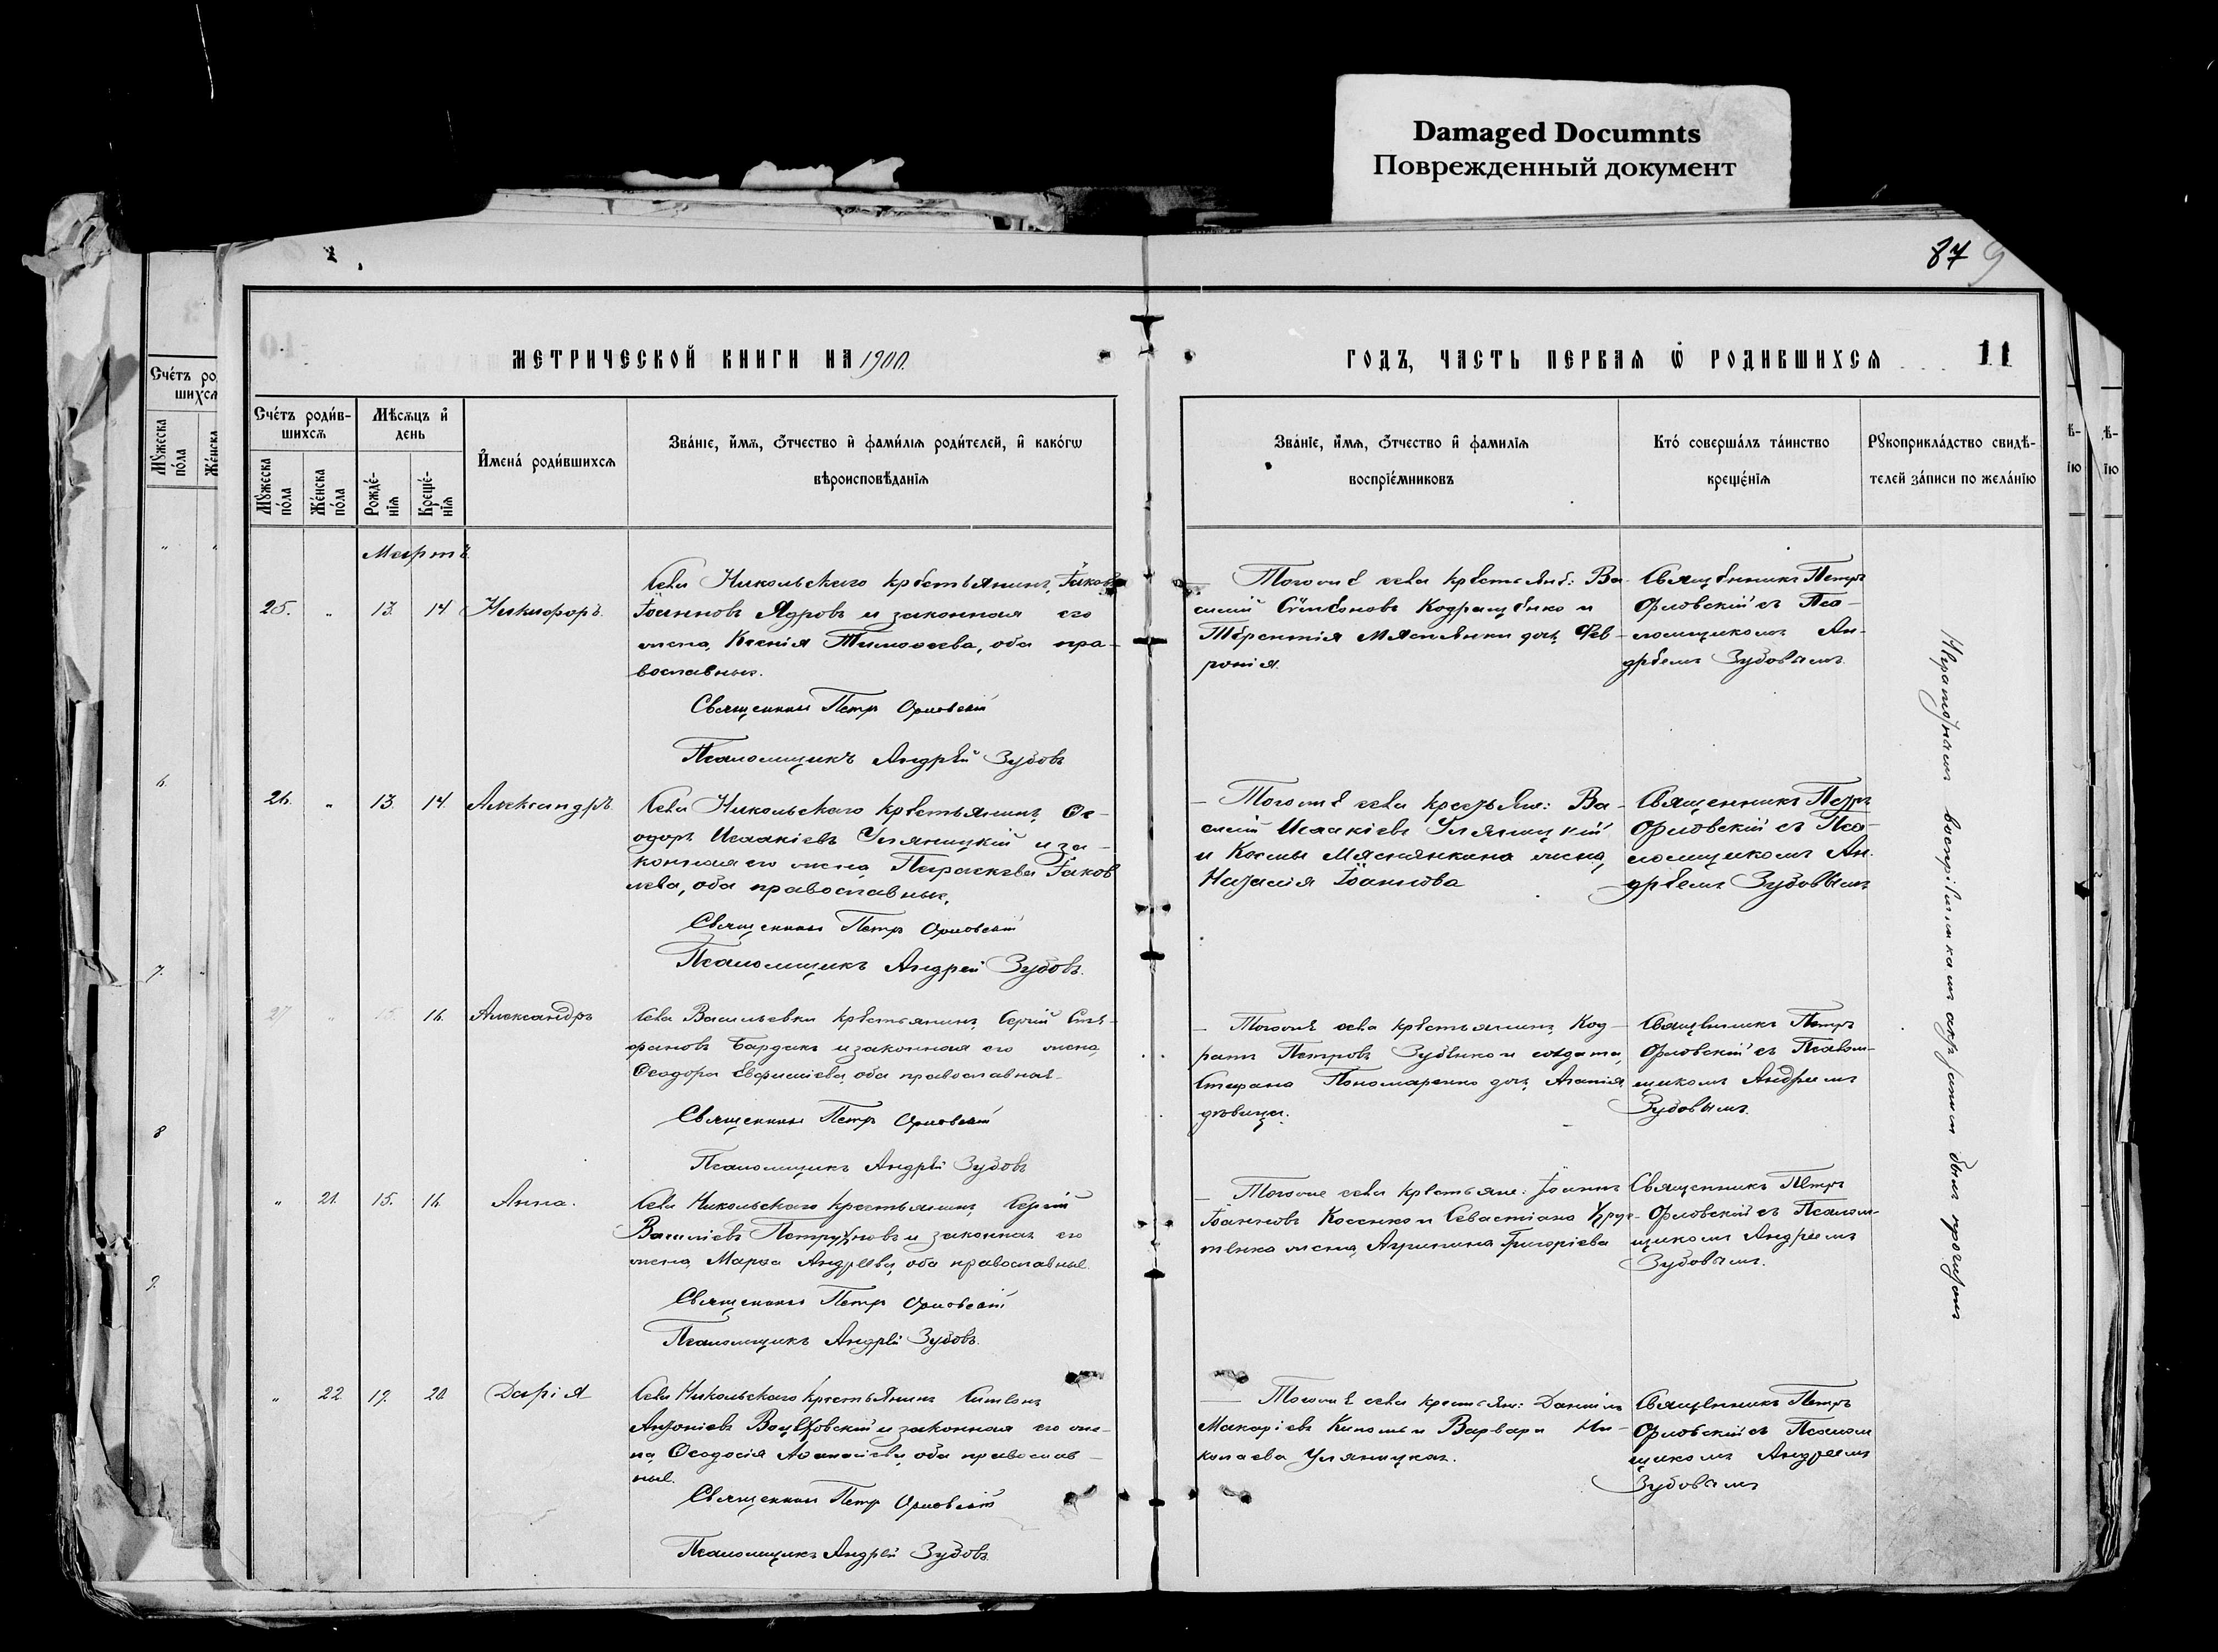 Damaged Documnts
Поврежденный документ
87 9
МЕТРИЧЕСКОЙ КНИГИ НА 1900
ГОДЪ, ЧАСТЬ ПЕРВАЯ Ѡ РОДИВШИХСЯ 11
Счётъ роди́в-
шихсѧ
Мѣ́сѧцъ и҆
день
И҆мена̀ роди́вшихсѧ
Зва́нїе, и҆́мѧ, ѻ҆́тчество и҆ фами́лїѧ роди́телей, и҆ како́гѡ
вѣроисповѣ́данїѧ
Мꙋ́жеска
по́ла
Же́нска
по́ла
Рожде́-
нїѧ
Креще́-
нїѧ
Зва́нїе, и҆́мѧ, ѻ҆́тчество и҆ фами́лїѧ
воспрїе́мниковъ
Кто̀ соверша́лъ та́инство
креще́нїѧ
Рꙋкоприкла́дство свидѣ́-
телей за́писи по жела́нїю
Мартъ.
25. " 13. 14 Никифоръ.
Села Никольскаго крестьянинъ, Іаковъ
Іоанновъ Ядровъ и законная его
жена, Ксенія Тимоѳеева, оба пра-
вославные.
Священникъ Петръ Орловскій
Псаломщикъ Андрей Зубовъ
Тогоже села крестьяне: Ва-
силій Сѵмеоновъ Кодращенко и
Терентія Мяснянки дочь Фев-
ронія.
Священникъ Петръ
Орловскій съ Пса-
ломщикомъ Ан-
дреемъ Зубовымъ.
26. " 13. 14. Александръ.
Села Никольскаго крестьянинъ, Ѳе-
одоръ Исаакіевъ Уляницкій и за-
конная его жена, Параскева Іаков
лева, оба православные.
Священникъ Петръ Орловскій
Псаломщикъ Андрей Зубовъ.
Тогоже села крестьяне: Ва-
силій Исаакіевъ Уляницкій
и Космы Мяснянкина жена,
Наталія Іоаннова
Священникъ Петръ
Орловскій съ Пса-
ломщикомъ Ан-
дреемъ Зубовымъ
27 " 15. 16. Александръ
Села Васильевки крестьянинъ, Сергій Сте-
фановъ Бардакъ и законная его жена,
Ѳеодора Евфиміева, оба православные.
Священникъ Петръ Орловскій
Псаломщикъ Андрей Зубовъ
Тогоже села крестьянинъ, Код-
ратъ Петровъ Зубенко и солдата,
Стефана Пономаренко дочь, Агапія
девица.
Священникъ Петръ
Орловскій съ Псалом-
щикомъ Андреемъ
Зубовымъ.
" 21. 15. 16. Анна.
Села Никольскаго крестьянинъ, Сергій
Василіевъ и законная его
жена, Марѳа Андреева, оба православные.
Священникъ Петръ Орловскій
Псаломщикъ Андрей Зубовъ.
Тогоже села крестьяне: Іоаннъ
Іоанновъ Косенко и Севастіана
жена, Агрипина Григоріева
Священникъ Петръ
Орловскій съ Псалом-
щикомъ Андреемъ
Зубовымъ.
" 22. 19. 20. Дарія
Села Никольскаго крестьянинъ Симеонъ
Антоніевъ и законная его же-
на, Ѳеодосія Аѳанасіева, оба православ-
ные.
Священникъ Петръ Орловскій
Псаломщикъ Андрей Зубовъ.
Тогоже села крестьяне: Даніилъ
Макаріевъ и Варвара Ни-
колаева Уляницкая.
Священникъ Петръ
Орловскій съ Псалом
щикомъ Андреемъ
Зубовымъ
Неграмотнымъ воспріемникамъ актъ сей былъ прочитанъ